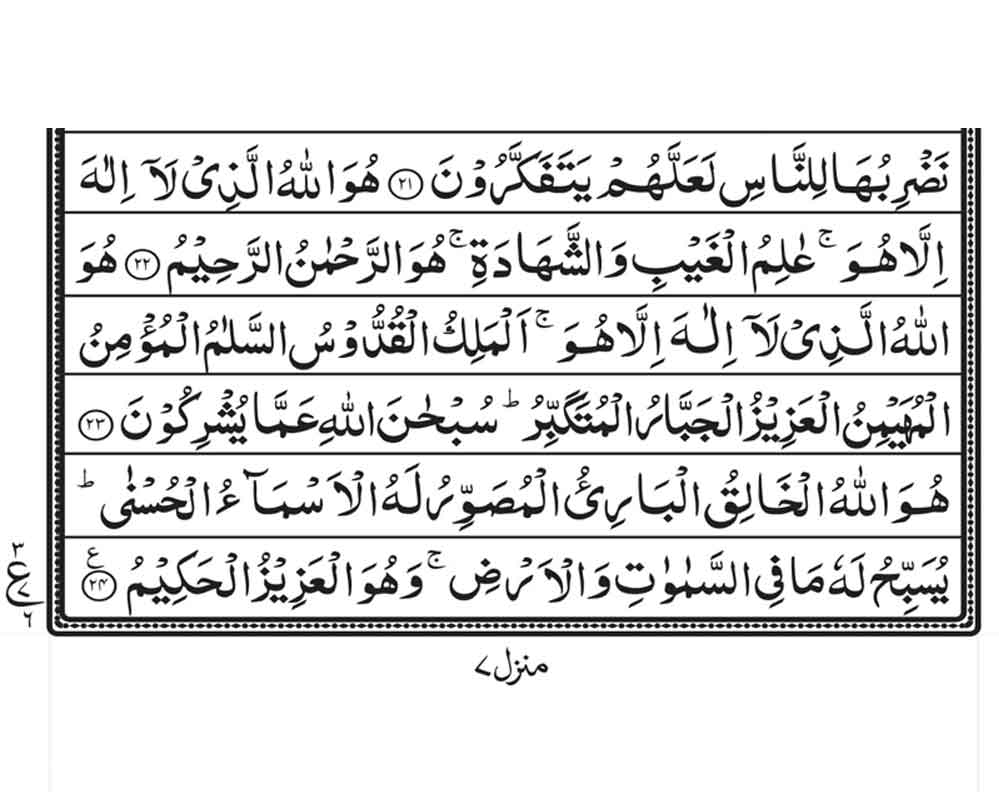 نَضْرِبُهَا لِلنَّاسِ لَعَلَّهُمْ يَتَفَكَّرُوْنَ ﴿۲۱﴾ هُوَ اللّٰهُ الَّذِىْ لَاۤ اِلٰهَ
اِلَّا هُوَ ۚ عٰلِمُ الْغَيْبِ وَالشَّهَادَةِ ۚ هُوَ الرَّحْمٰنُ الرَّحِيْمُ ﴿۲۲﴾ هُوَ
اللّٰهُ الَّذِىْ لَاۤ اِلٰهَ اِلَّا هُوَ ۚ اَلْمَلِكُ الْقُدُّوْسُ السَّلٰمُ الْمُؤْمِنُ
الْمُهَيْمِنُ الْعَزِيْزُ الْجَبَّارُ الْمُتَكَبِّرُ ؕ سُبْحٰنَ اللّٰهِ عَمَّا يُشْرِكُوْنَ ﴿۲۳﴾
هُوَ اللّٰهُ الْخَالِقُ الْبَارِئُ الْمُصَوِّرُ لَهُ الْاَسْمَآءُ الْحُسْنٰى ؕ
يُسَبِّحُ لَهٗ مَا فِى السَّمٰوٰتِ وَالْاَرْضِ ۚ وَهُوَ الْعَزِيْزُ الْحَكِيْمُ ﴿۲۴﴾ ع
۳ ع ۷ ۶
منزل ۷